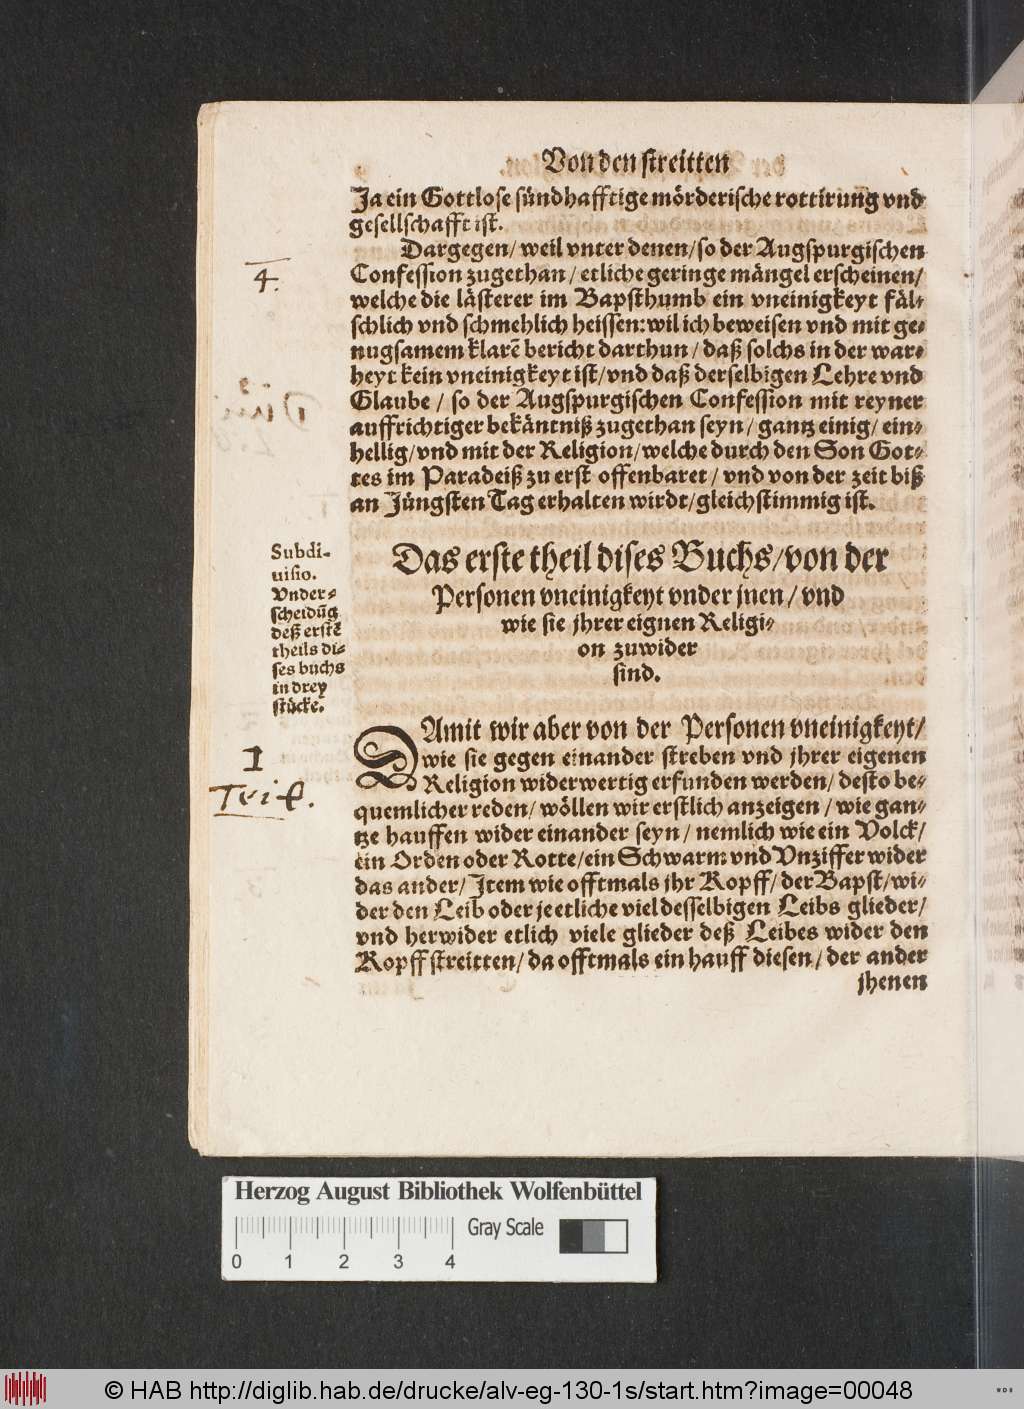 Von den streitten
Ja ein Gottlose sündhafftige mörderische rottirung vnd
gesellschafft ist.
Dargegen/ weil vnter denen/ so der Augspurgischen
Confession zugethan/ etliche geringe mängel erscheinen/
4.
welche die lästerer im Bapsthumb ein vneinigkeyt fäl-
schlich vnd schmehlich heissen: wil ich beweisen vnd mit ge-
nugsamem klarē bericht darthun/ daß solchs in der war-
heyt kein vneinigkeyt ist/ vnd daß derselbigen Lehre vnd
Glaube/ so der Augspurgischen Confession mit reyner
auffrichtiger bekäntniß zugethan seyn/ gantz einig/ ein-
hellig/ vnd mit der Religion/ welche durch den Son Got-
tes im Paradeiß zu erst offenbaret/ vnd von der zeit biß
an Jüngsten Tag erhalten wirdt/ gleichstimmig ist.
Subdi-
uisio.
Vnder-
scheidūg
deß erstē
theils di-
ses buchs
in drey
stücke.
Das erste theil dises Buchs/ von der
Personen vneinigkeyt vnder jnen/ vnd
wie sie jhrer eignen Religi-
on zuwider
sind.
1
Teil.
DAmit wir aber von der Personen vneinigkeyt/
wie sie gegen einander streben vnd jhrer eigenen
Religion widerwertig erfunden werden/ desto be-
quemlicher reden/ wöllen wir erstlich anzeigen/ wie gan-
tze hauffen wider einander seyn/ nemlich wie ein Volck/
ein Orden oder Rotte/ ein Schwarm vnd Vnziffer wider
das ander/ Jtem wie offtmals jhr Kopff/ der Bapst/ wi-
der den Leib oder je etliche viel desselbigen Leibs glieder/
vnd herwider etlich viele glieder deß Leibes wider den
Kopff streitten/ da offtmals ein hauff diesen/ der ander
jhenen
Herzog August Bibliothek Wolfenbüttel
Gray Scale
0 1 2 3 4
© HAB http://diglib.hab.de/drucke/alv-eg-130-1s/start.htm?image=00048